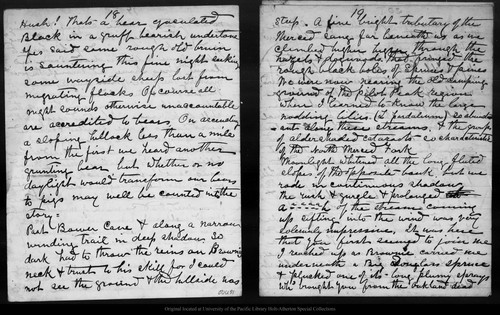 18
Hush! Thats a bear ejaculated
Black in a gruff bearish undertone
Yes said some rough old bruin
is sauntering this fine night seeking
some wayside sheep lost from
migrating flocks Of course all
night sounds otherwise unaccountable
are accredited to bears On ascending
a sloping hillock less than a mile
from the first we heard another
grunting bear but whether or no
daylight would transform our bears
to pigs may well be counted into the
story =
Past Bower Cave & along a narrow
winding trail in deep shadow So
dark had to throw the reins on Brownies
neck & trust to his skill for I could
not see the ground & the hillside was
19
steep. A fine bright tributary of the
Merced sang far beneath us as we
climbed higher higher through the
hazels & dogwoods that fringed the
rough black boles of spruces & pines
We were now nearing the old camping
ground of the Pilot Peak region
where I learned to know the large
nodding lilies (L pardalinum) so abundant
along these streams, & the groups
of alder shaded cataracts so characteristic
of the North Merced Fork
Moonlight whitened all the long fluted
slopes of the opposite bank but we
rode in continuous shadow
the rush & gurgle & prolonged
of the stream coming
up sifting into the wind was very
solemnly impressive. It was here
that you first seemed to join me
I reached up as Brownie carried me
underneath a Big Douglass Spruce
& plucked one of its long plumy sprays
wh brought you from the Oakland dead
Original located at University of the Pacific Library Holt-Atherton Special Collections